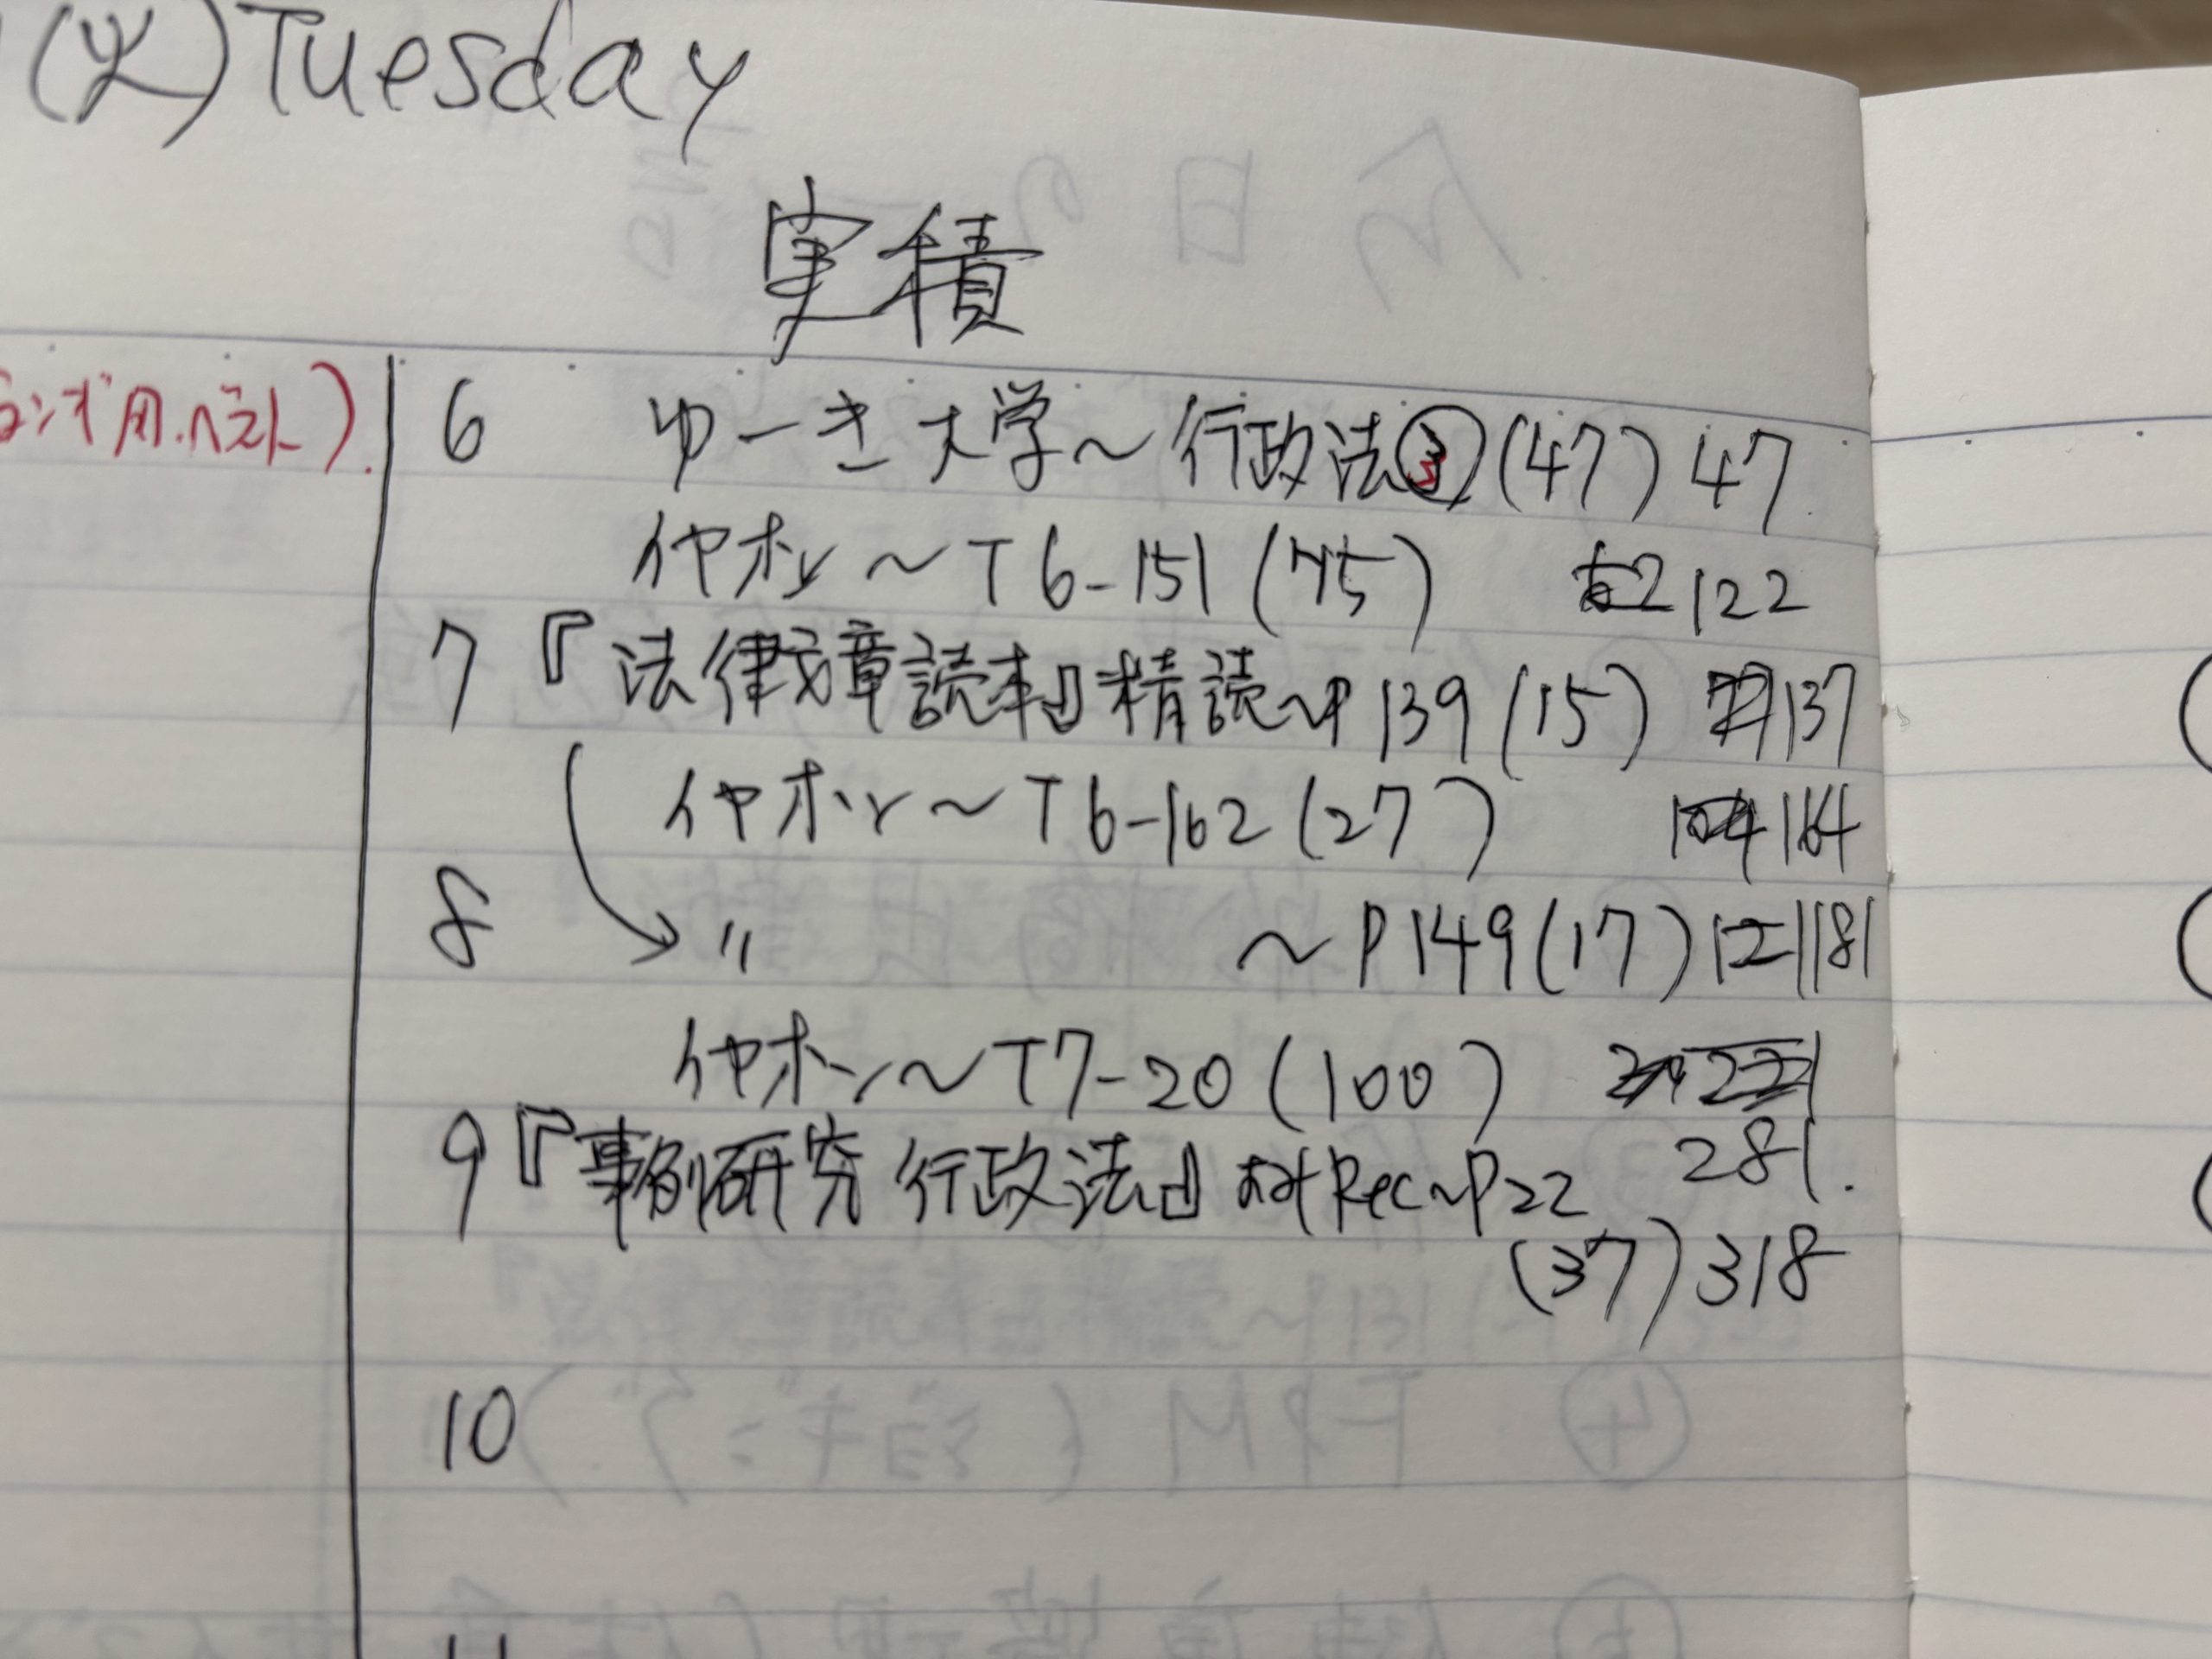 (火) Tuesday
実積
ランク用.ベスト).
6 ゆーき大学〜行政法③ (47) 47
イヤホン〜T6-151 (75) 122
7 『法律文章読本』精読〜P139 (15) 137
イヤホン〜T6-162 (27) 164
8 〃 〜P149 (17) 181
イヤホン〜T7-20 (100)
281.
9 『事例研究 行政法』 Rec〜P22
(37) 318
10